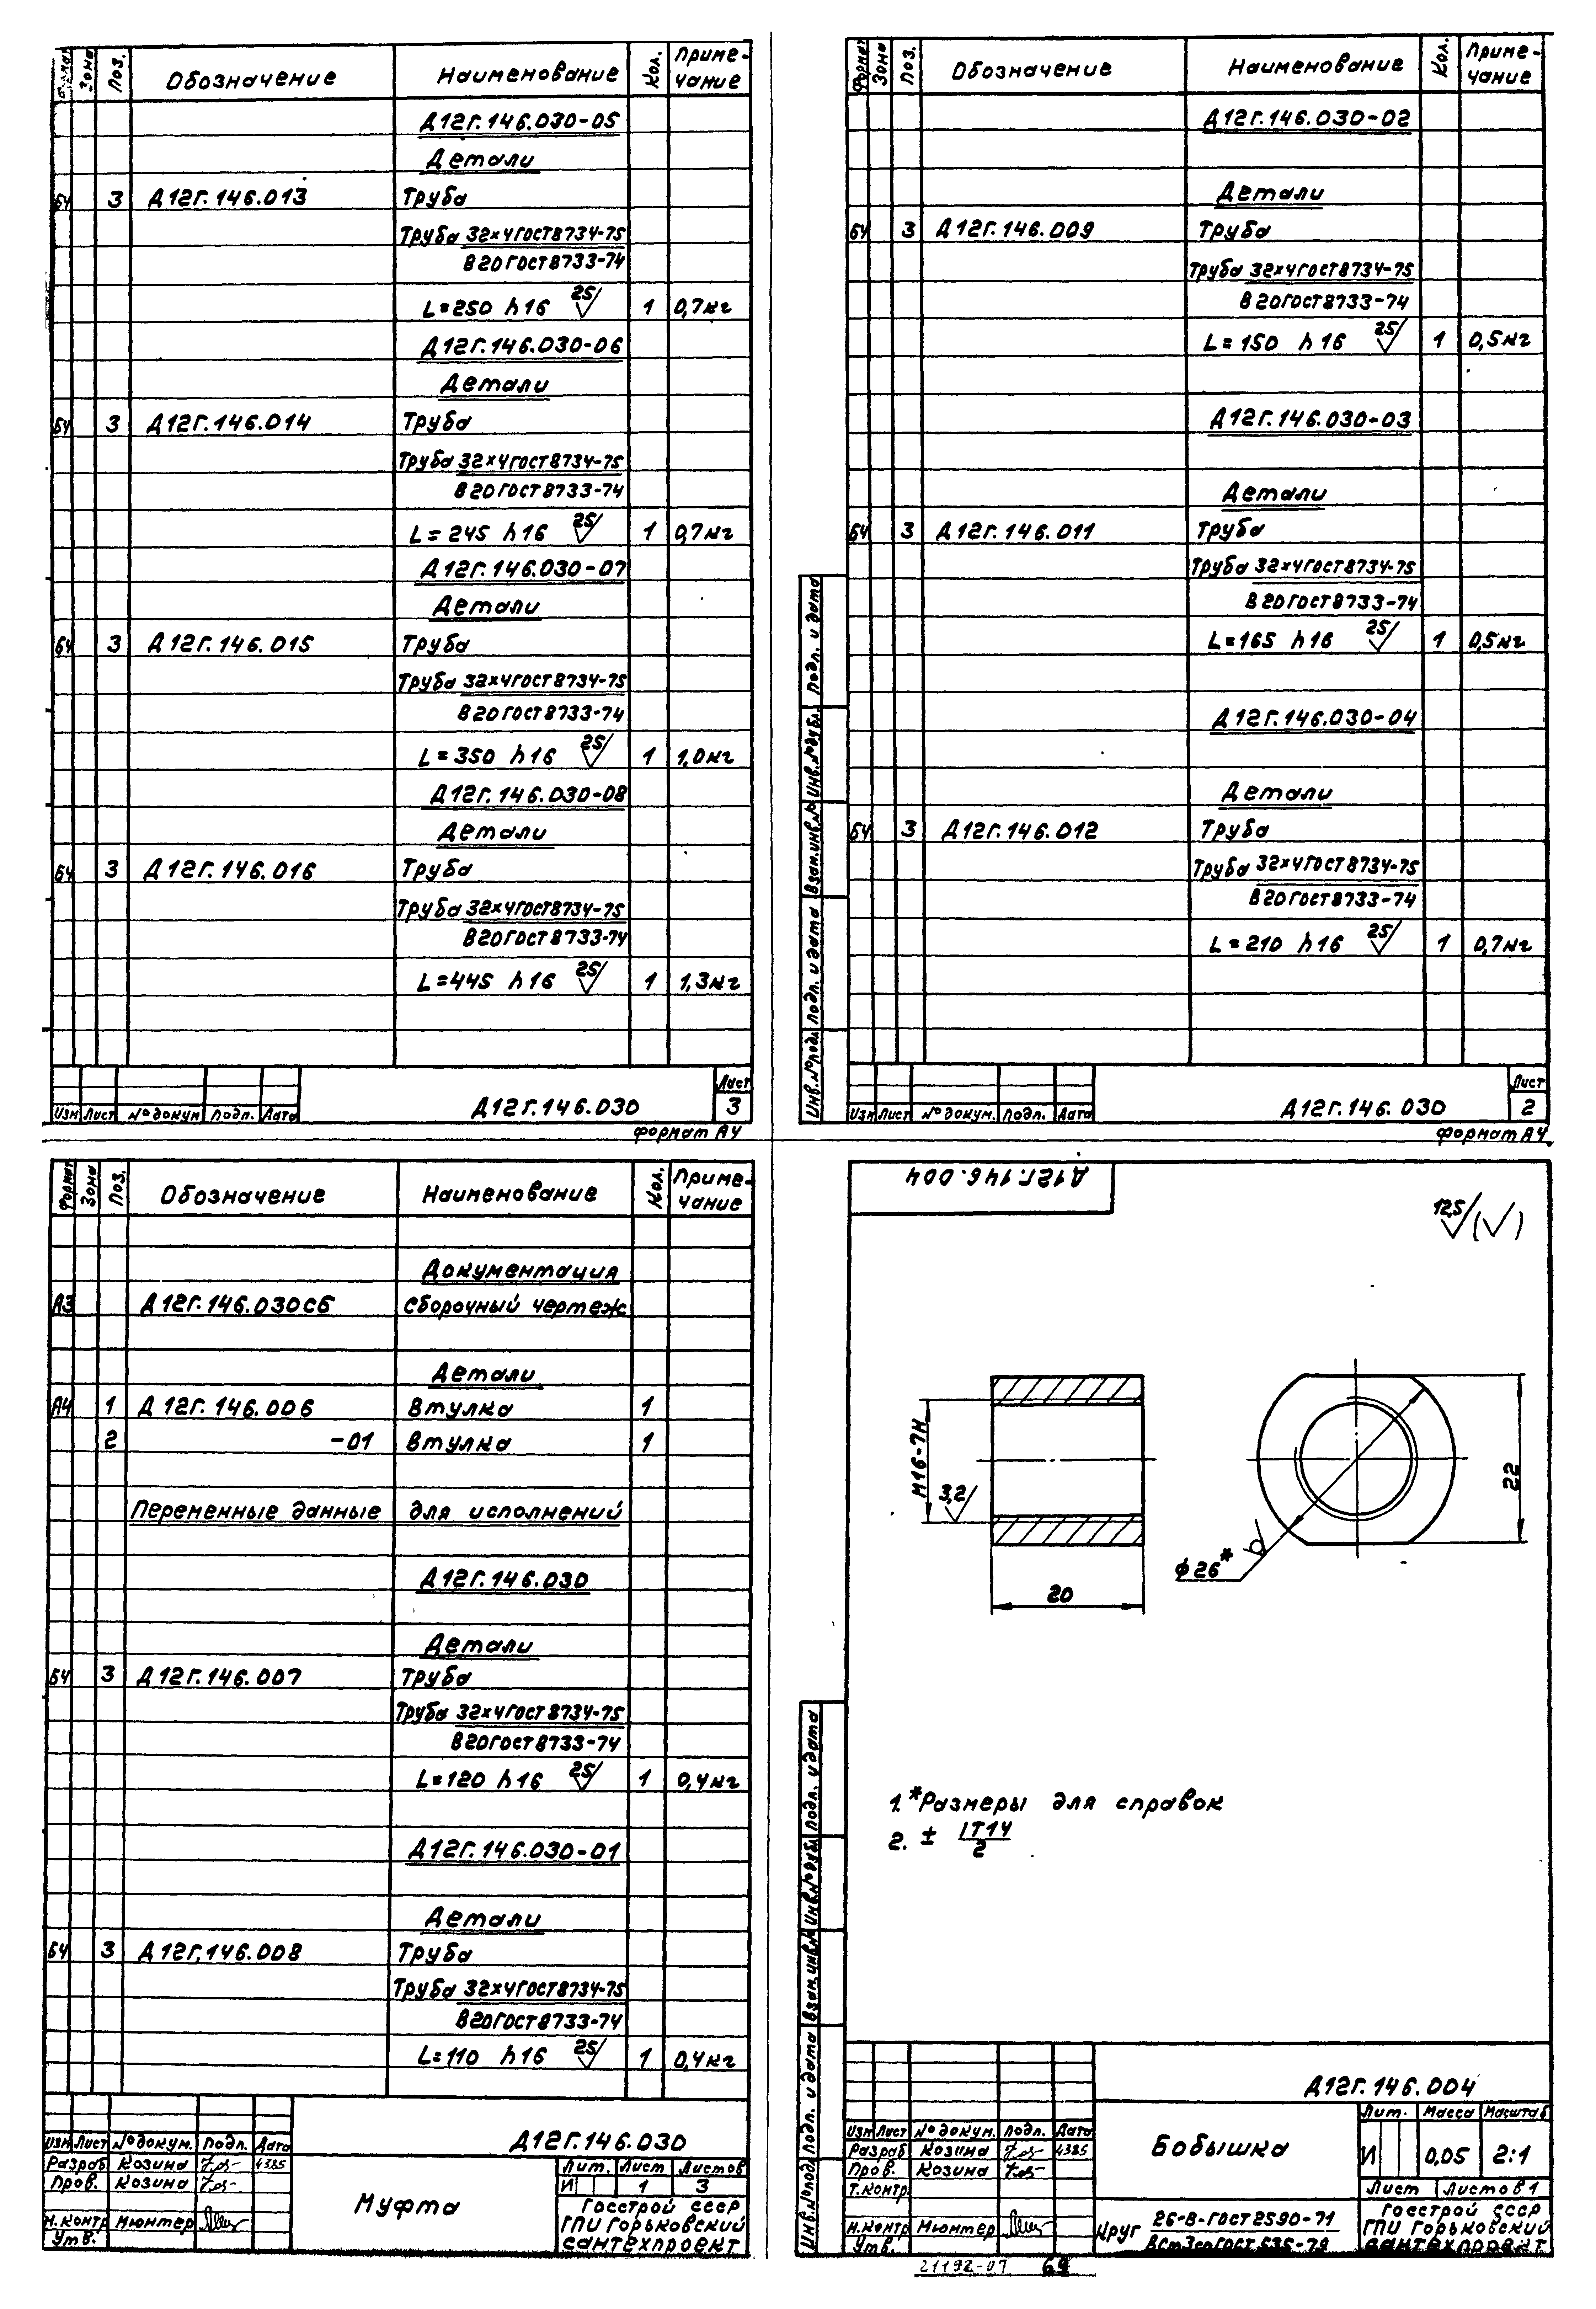 Формат Зона Поз. Обозначение Наименование Кол. Приме-
чание
Д12Г.146.030-05
Детали
БЧ 3 Д12Г.146.013 Труба
Труба 32×4ГОСТ8734-75
В20ГОСТ8733-74
L=250 h16 25 1 0,7кг
Д12Г.146.030-06
Детали
БЧ 3 Д12Г.146.014 Труба
Труба 32×4ГОСТ8734-75
В20ГОСТ8733-74
L=245 h16 25 1 0,7кг
Д12Г.146.030-07
Детали
БЧ 3 Д12Г.146.015 Труба
Труба 32×4ГОСТ8734-75
В20ГОСТ8733-74
L=350 h16 25 1 1,0кг
Д12Г.146.030-08
Детали
БЧ 3 Д12Г.146.016 Труба
Труба 32×4ГОСТ8734-75
В20ГОСТ8733-74
L=445 h16 25 1 1,3кг
Изм Лист № докум Подп. Дата Д12Г.146.030 Лист 3
формат А4
Формат Зона Поз. Обозначение Наименование Кол. Приме-
чание
Д12Г.146.030-02
Детали
БЧ 3 Д12Г.146.009 Труба
Труба 32×4ГОСТ8734-75
В20ГОСТ8733-74
L=150 h16 25 1 0,5кг
Д12Г.146.030-03
Детали
БЧ 3 Д12Г.146.011 Труба
Труба 32×4ГОСТ8734-75
В20ГОСТ8733-74
L=165 h16 25 1 0,5кг
Д12Г.146.030-04
Детали
БЧ 3 Д12Г.146.012 Труба
Труба 32×4ГОСТ8734-75
В20ГОСТ8733-74
L=210 h16 25 1 0,7кг
Инв.№подл Подп. и дата Взам.инв.№ Инв.№дубл. Подп. и дата
Изм Лист № докум. Подп. Дата Д12Г.146.030 Лист 2
формат А4
Формат Зона Поз. Обозначение Наименование Кол. Приме-
чание
Документация
А3 Д12Г.146.030СБ Сборочный чертеж
Детали
А4 1 Д12Г.146.006 Втулка 1
2 -01 Втулка 1
Переменные данные для исполнений
Д12Г.146.030
Детали
БЧ 3 Д12Г.146.007 Труба
Труба 32×4ГОСТ8734-75
В20ГОСТ8733-74
L=120 h16 25 1 0,4кг
Д12Г.146.030-01
Детали
БЧ 3 Д12Г.146.008 Труба
Труба 32×4ГОСТ8734-75
В20ГОСТ8733-74
L=110 h16 25 1 0,4кг
Д12Г.146.030
Изм Лист № докум. Подп. Дата
Разраб Козина 4385
Пров. Козина
Н.контр Мюнтер
Утв.
Муфта
Лит. Лист Листов
И 1 3
Госстрой СССР
ГПИ Горьковский
Сантехпроект
Д12Г.146.004
12,5 (√)
М16-7Н
3,2
20
22
ϕ26*
1. *Размеры для справок
2. ± IT14/2
Инв.№подл Подп. и дата Взам.инв.№ Инв.№дубл Подп. и дата
Д12Г.146.004
Изм Лист № докум. Подп. Дата
Разраб Козина 4385
Пров. Козина
Т.контр.
Н.контр Мюнтер
Утв.
Бобышка
Лит. Масса Масштаб
И 0,05 2:1
Лист Листов 1
Круг 26-В-ГОСТ2590-71
ВСт3спГОСТ 535-79
Госстрой СССР
ГПИ Горьковский
Сантехпроект
21192-07 69